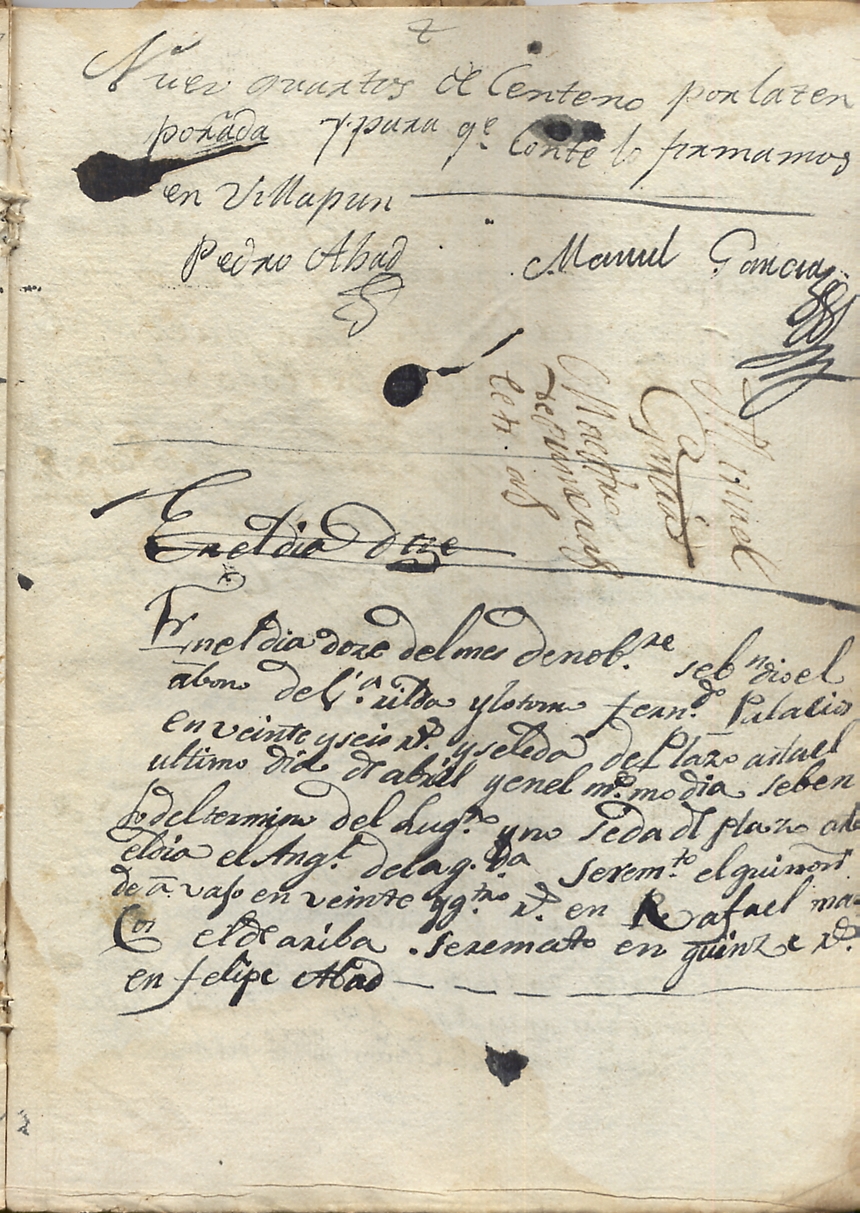 Nuev quartos de Centeno por la ten
porada y para qe Conte lo firmamos
en Villapun
Pedro Abad Manuel Garcia
Manuel
Garcia
Maestro
de primeras
letras
En el dia doze
En el dia doze del mes de nobre se bndio el
abono de la villa y lo tomo ferndo Palacio
en veinte y seis rs. y se le da de Plazo asta el
ultimo dia de abril y en el mesmo dia se ben
do del termino del Lugar y no se da de plazo asta
el dia el Angl de la g.da se remto el quiñon
de avajo en veinte y qtro rs. en Rafael mar
Cos el de ariba se remato en quinze rs.
en felipe Abad